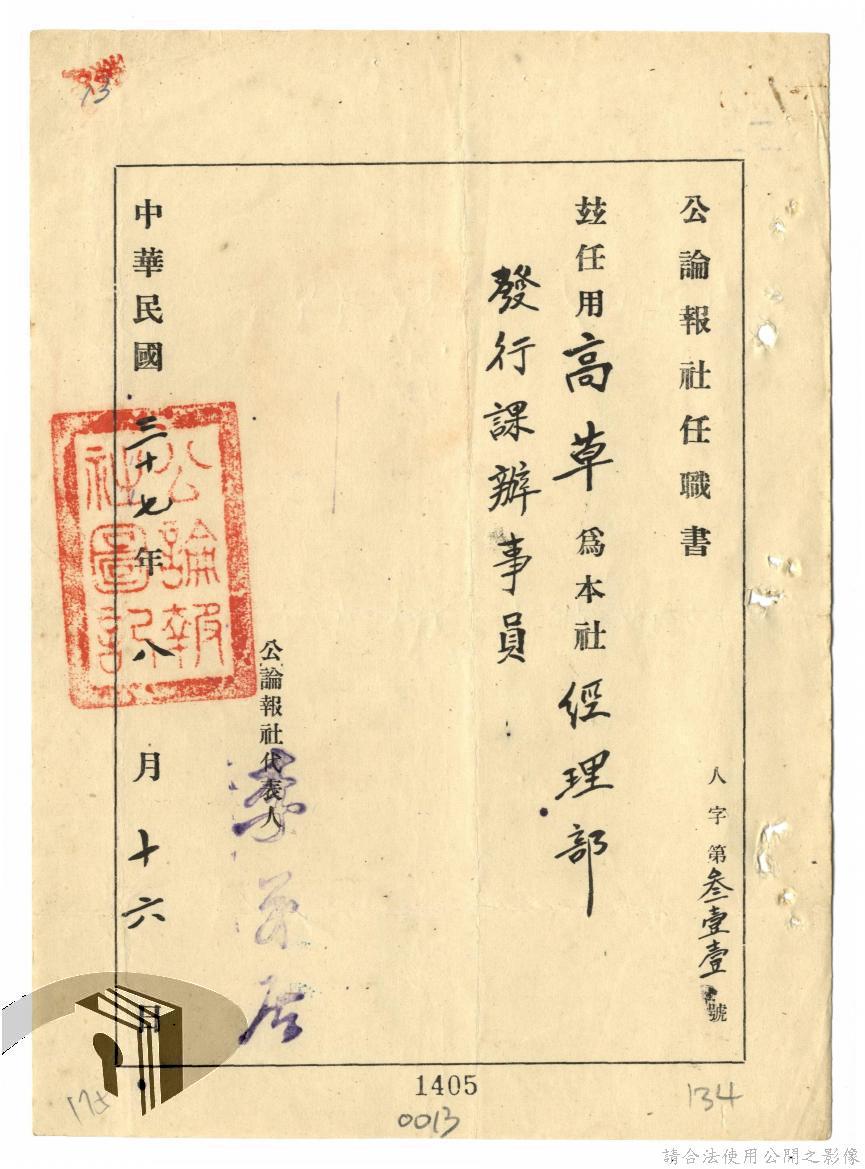 公論報社任職書
人字第叁壹壹號
玆任用高草爲本社經理部
發行課辦事員
公論報社代表人
李萬居
中華民國三十七年八月十六日
公論報
社圖記
13
1405
0013
134
請合法使用公開之影像